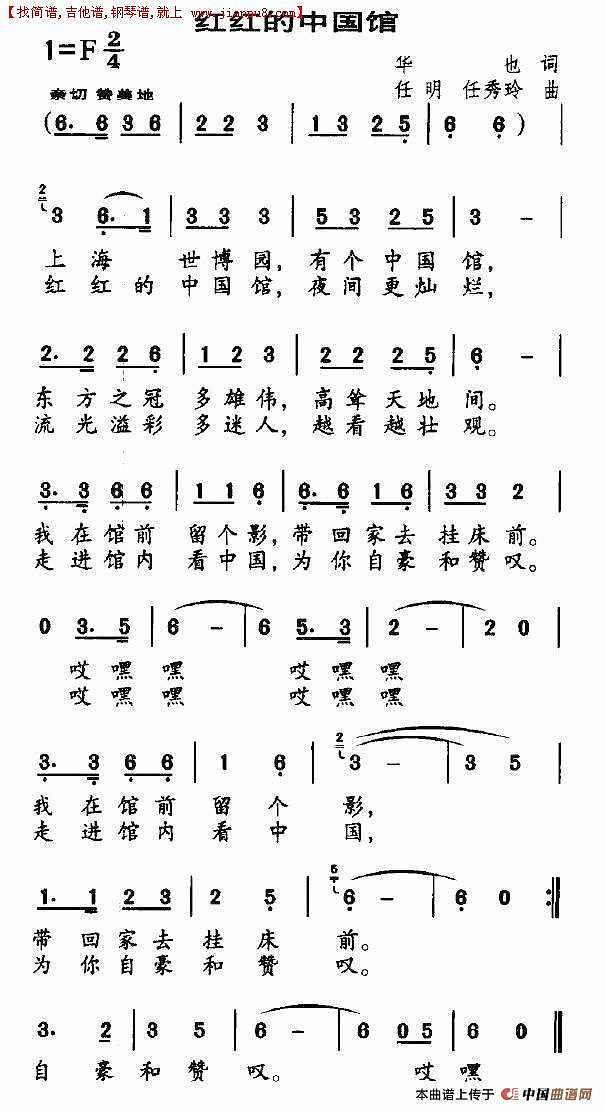 【找简谱,吉他谱,钢琴谱,就上 www.jianpu8.com】
红红的中国馆
1=F 2/4
华 也 词
亲切 赞美地
任 明 任秀玲 曲
( 6. 6 3 6 | 2 2 3 | 1. 3 2 5 | 6 6 ) |
2 3 6. 1 | 3 3 3 | 5 3 2 5 | 3 – |
上 海 世 博 园, 有 个 中 国 馆,
红 红 的 中 国 馆, 夜 间 更 灿 烂,
2. 2 2 6 | 1 2 3 | 2 2 2 5 | 6 – |
东 方 之 冠 多 雄 伟, 高 耸 天 地 间。
流 光 溢 彩 多 迷 人, 越 看 越 壮 观。
3. 3 6 6 | 1 1 6 | 6. 6 1 6 | 3 3 2 |
我 在 馆 前 留 个 影, 带 回 家 去 挂 床 前。
走 进 馆 内 看 中 国, 为 你 自 豪 和 赞 叹。
0 3. 5 | 6 – | 6 5. 3 | 2 – | 2 0 |
哎 嘿 嘿 哎 嘿 嘿
哎 嘿 嘿 哎 嘿 嘿
3. 3 6 6 | 1 6 | 2 3 – | 3 5 |
我 在 馆 前 留 个 影,
走 进 馆 内 看 中 国,
1. 1 2 3 | 2 5 | 5 6 – | 6 0 :‖
带 回 家 去 挂 床 前。
为 你 自 豪 和 赞 叹。
3. 2 | 3 5 | 6 – | 6 0 5 | 6 0 ‖
自 豪 和 赞 叹。 哎 嘿
本曲谱上传于 中国曲谱网